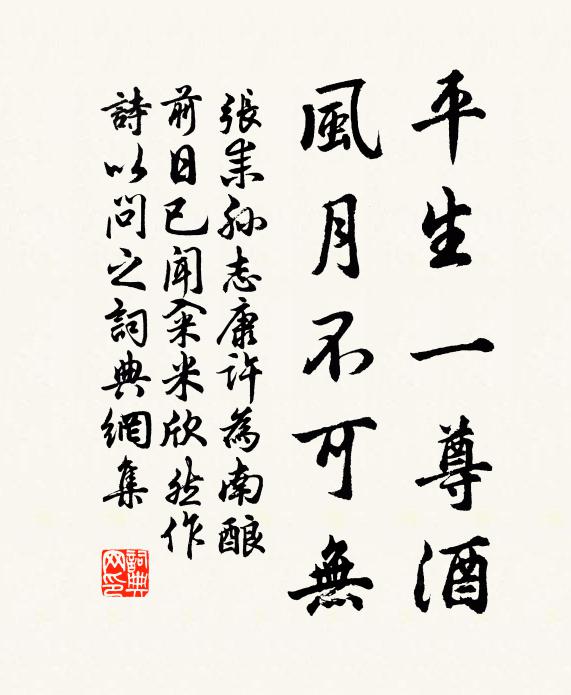 平生一尊酒
風月不可無
張耒孫志康許為南釀
前日已聞籴米欣然作
詩以問之詞典網集
詞典
网印